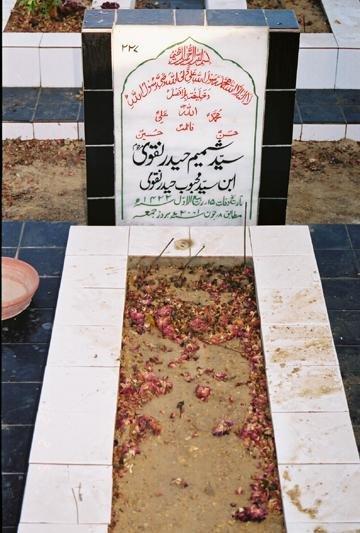 ۲۲۷
بسم اللہ الرحمن الرحیم
لا الہ الا اللہ محمد رسول اللہ علی ولی اللہ وصی رسول اللہ
وخلیفتہ بلا فصل
اللہ
محمدؐ علیؑ
فاطمہؑ
حسنؑ حسینؑ
سید شمیم حیدر نقوی
ابن سید محبوب حیدر نقوی
تاریخ وفات ۱۵ ربیع الاول ۱۴۲۲ھ
مطابق ۸ جون ۲۰۰۱ء بروز جمعہ